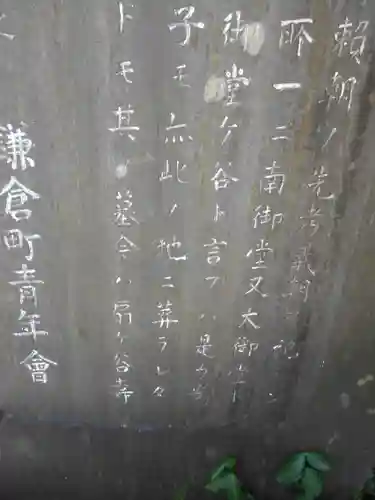 頼朝ノ先考義朝
所一ニ南御堂又大御堂ト
御堂ケ谷ト言フハ是
子モ亦此ノ地ニ葬ラレ
ドモ其ノ墓今ハ扇ヶ谷寿
鎌倉町青年會